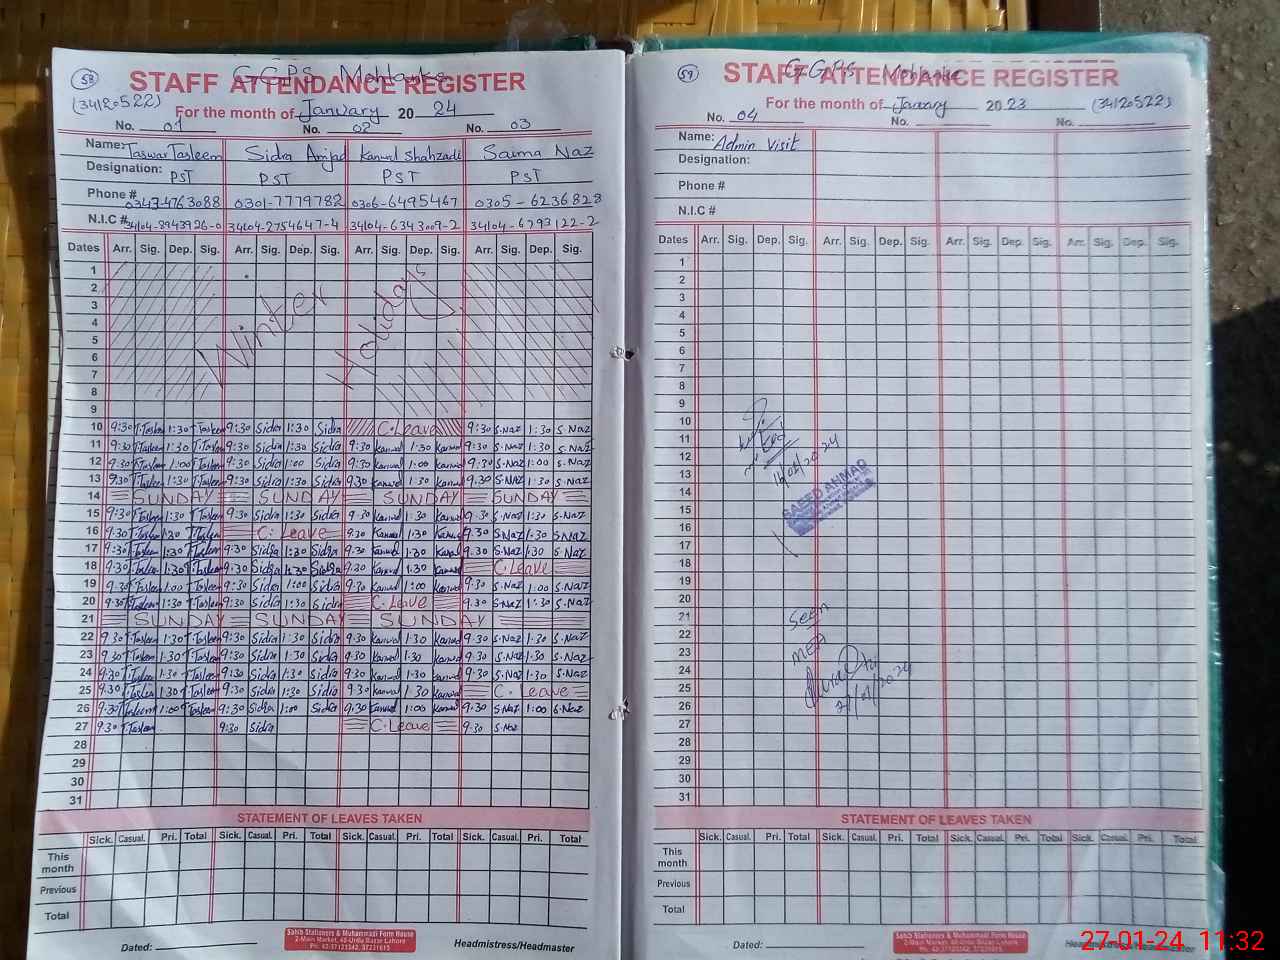 58
GGPS Mohlanke
STAFF ATTENDANCE REGISTER
(34120522)
For the month of January 20 24
No. 01 No. 02 No. 03
Name: Taswar Tasleem Sidra Amjad Kanwal Shahzadi Saima Naz
Designation: PST PST PST PST
Phone # 0347-4763088 0301-7779782 0306-6495467 0305-6236828
N.I.C # 34104-8943926-0 34104-2754647-4 34104-6343009-2 34104-6793122-2
Dates Arr. Sig. Dep. Sig. Arr. Sig. Dep. Sig. Arr. Sig. Dep. Sig. Arr. Sig. Dep. Sig.
1
2
3
4
5
6
7
8
9
Winter Holidays
10 9:30 T.Tasleem 1:30 T.Tasleem 9:30 Sidra 1:30 Sidra C.Leave 9:30 S.Naz 1:30 S.Naz
11 9:30 T.Tasleem 1:30 T.Tasleem 9:30 Sidra 1:30 Sidra 9:30 Kanwal 1:30 Kanwal 9:30 S.Naz 1:30 S.Naz
12 9:30 T.Tasleem 1:00 T.Tasleem 9:30 Sidra 1:00 Sidra 9:30 Kanwal 1:00 Kanwal 9:30 S.Naz 1:00 S.Naz
13 9:30 T.Tasleem 1:30 T.Tasleem 9:30 Sidra 1:30 Sidra 9:30 Kanwal 1:30 Kanwal 9:30 S.Naz 1:30 S.Naz
14 SUNDAY SUNDAY SUNDAY SUNDAY
15 9:30 T.Tasleem 1:30 T.Tasleem 9:30 Sidra 1:30 Sidra 9:30 Kanwal 1:30 Kanwal 9:30 S.Naz 1:30 S.Naz
16 9:30 T.Tasleem 1:30 T.Tasleem C.Leave 9:30 Kanwal 1:30 Kanwal 9:30 S.Naz 1:30 S.Naz
17 9:30 T.Tasleem 1:30 T.Tasleem 9:30 Sidra 1:30 Sidra 9:30 Kanwal 1:30 Kanwal 9:30 S.Naz 1:30 S.Naz
18 9:30 T.Tasleem 1:30 T.Tasleem 9:30 Sidra 1:30 Sidra 9:30 Kanwal 1:30 Kanwal C.Leave
19 9:30 T.Tasleem 1:00 T.Tasleem 9:30 Sidra 1:00 Sidra 9:30 Kanwal 1:00 Kanwal 9:30 S.Naz 1:00 S.Naz
20 9:30 T.Tasleem 1:30 T.Tasleem 9:30 Sidra 1:30 Sidra C.Leave 9:30 S.Naz 1:30 S.Naz
21 SUNDAY SUNDAY SUNDAY
22 9:30 T.Tasleem 1:30 T.Tasleem 9:30 Sidra 1:30 Sidra 9:30 Kanwal 1:30 Kanwal 9:30 S.Naz 1:30 S.Naz
23 9:30 T.Tasleem 1:30 T.Tasleem 9:30 Sidra 1:30 Sidra 9:30 Kanwal 1:30 Kanwal 9:30 S.Naz 1:30 S.Naz
24 9:30 T.Tasleem 1:30 T.Tasleem 9:30 Sidra 1:30 Sidra 9:30 Kanwal 1:30 Kanwal 9:30 S.Naz 1:30 S.Naz
25 9:30 T.Tasleem 1:30 T.Tasleem 9:30 Sidra 1:30 Sidra 9:30 Kanwal 1:30 Kanwal C.Leave
26 9:30 T.Tasleem 1:00 T.Tasleem 9:30 Sidra 1:00 Sidra 9:30 Kanwal 1:00 Kanwal 9:30 S.Naz 1:00 S.Naz
27 9:30 T.Tasleem 9:30 Sidra C.Leave 9:30 S.Naz
28
29
30
31
STATEMENT OF LEAVES TAKEN
Sick. Casual. Pri. Total Sick. Casual. Pri. Total Sick. Casual. Pri. Total Sick. Casual. Pri. Total
This month
Previous
Total
Dated:
Sahib Stationers & Muhammadi Form House
2-Main Market, 40-Urdu Bazar Lahore
Headmistress/Headmaster
59
GGPS Mohlanke
STAFF ATTENDANCE REGISTER
For the month of January 2023 (34120522)
No. 04 No. No.
Name: Admin Visit
Designation:
Phone #
N.I.C #
Dates Arr. Sig. Dep. Sig. Arr. Sig. Dep. Sig. Arr. Sig. Dep. Sig. Arr. Sig. Dep. Sig.
1
2
3
4
5
6
7
8
9
10
11
12
13
14
15
16
17
18
19
20
21
22
23
24
25
26
27
28
29
30
31
16/01/2024
SAEED AHMAD
Seen
MEA
27/01/2024
STATEMENT OF LEAVES TAKEN
Sick. Casual. Pri. Total Sick. Casual. Pri. Total Sick. Casual. Pri. Total Sick. Casual. Pri. Total
This month
Previous
Total
Dated:
Sahib Stationers & Muhammadi Form House
2-Main Market, 40-Urdu Bazar Lahore
Headmistress/Headmaster
27-01-24 11:32